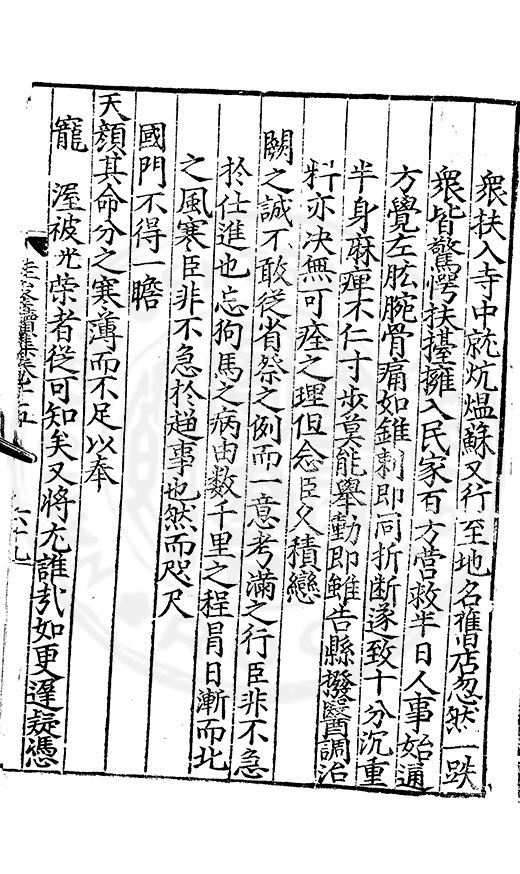 衆扶入寺中就炕熅蘇又行至地名舊店忽然一跌
衆皆驚愕扶擡擁入民家百方營救半日人事始通
方覺左肱腕骨痛如錐刺即同折斷遂致十分沉重
半身麻痺不仁寸步莫能舉動即雖告縣撥醫調治
料亦決無可痊之理但念臣久積戀
闕之誠不敢從省祭之例而一意考滿之行臣非不急
於仕進也忘狗馬之病由數千里之程冐日漸而北
之風寒臣非不急於趨事也然而咫尺
國門不得一瞻
天顔其命分之寒薄而不足以奉
寵渥被光榮者從可知矣又將尤誰哉如更遲疑憑
續集卷之十五
六十九